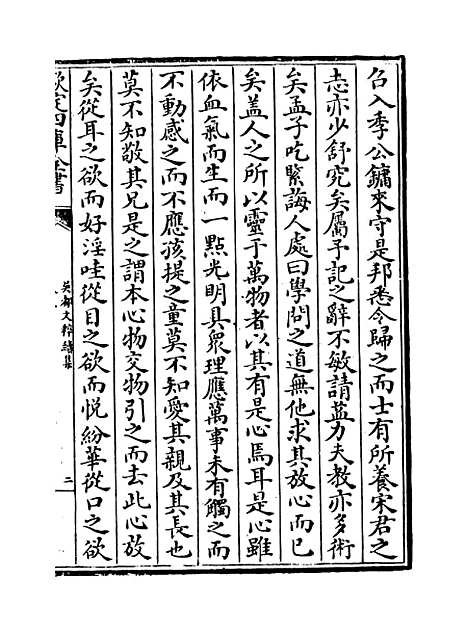 名入季公鏞來守是邦悉令歸之而士有所養宋君之
志亦少舒究矣屬予記之辭不敏請益力夫教亦多術
矣孟子吃緊誨人處曰學問之道無他求其放心而已
矣盖人之所以靈于萬物者以其有是心焉耳是心雖
依血氣而生而一點光明具衆理應萬事未有觸之而
不動感之而不應孩提之童莫不知愛其親及其長也
莫不知敬其兄是之謂本心物交物引之而去此心放
矣從耳之欲而好淫哇從目之欲而悦紛華從口之欲
欽定四庫全書
吳都文粹續集
二